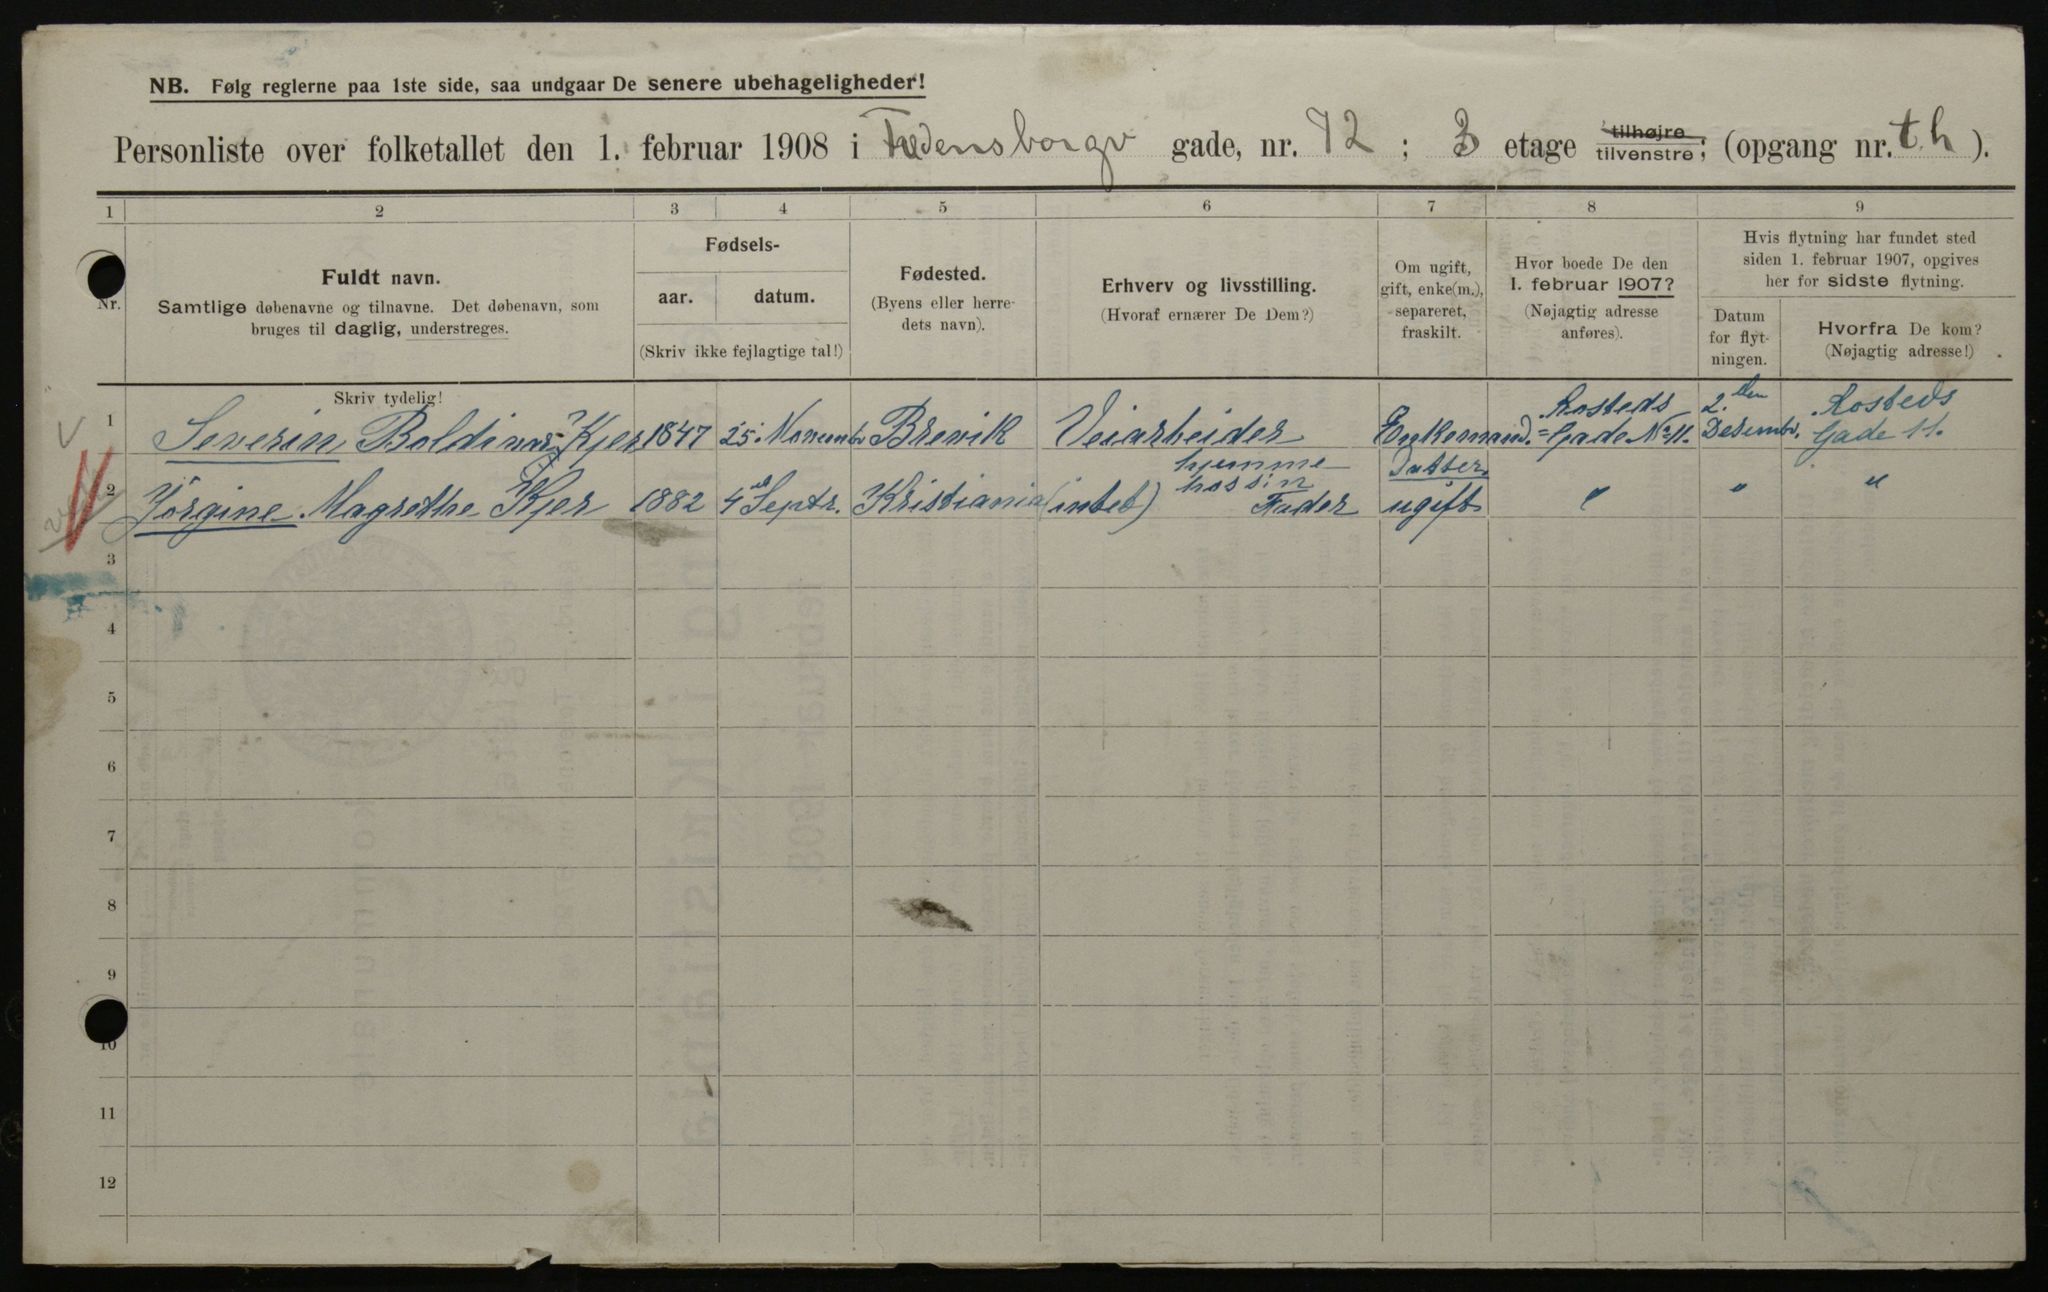 NB. Følg reglerne paa 1ste side, saa undgaar De senere ubehageligheder!
Personliste over folketallet den 1. februar 1908 i Fredensborgv gade, nr. 12 ; 3 etage tilhøjre tilvenstre; (opgang nr. t.h ).
1 2 3 4 5 6 7 8 9
Nr.
Fuldt navn.
Samtlige døbenavne og tilnavne. Det døbenavn, som
bruges til daglig, understreges.
Fødsels-
aar. datum.
(Skriv ikke fejlagtige tal!)
Fødested.
(Byens eller herre-
dets navn).
Erhverv og livsstilling.
(Hvoraf ernærer De Dem?)
Om ugift,
gift, enke(m.),
separeret,
fraskilt.
Hvor boede De den
1. februar 1907?
(Nøjagtig adresse
anføres).
Hvis flytning har fundet sted
siden 1. februar 1907, opgives
her for sidste flytning.
Datum
for flyt-
ningen.
Hvorfra De kom?
(Nøjagtig adresse!)
Skriv tydelig!
1 Severin Boldinar Kjer 1847 25 Novembr Brevik Veiarbeider Enkemand. Rosteds Gade No 11. 2. den Desembr. Rosteds Gade 11.
2 Jörgine Magrethe Kjer 1882 4 Septr. Kristiania (intet) hjemme hos sin Fader Datter ugift " " "
3
4
5
6
7
8
9
10
11
12